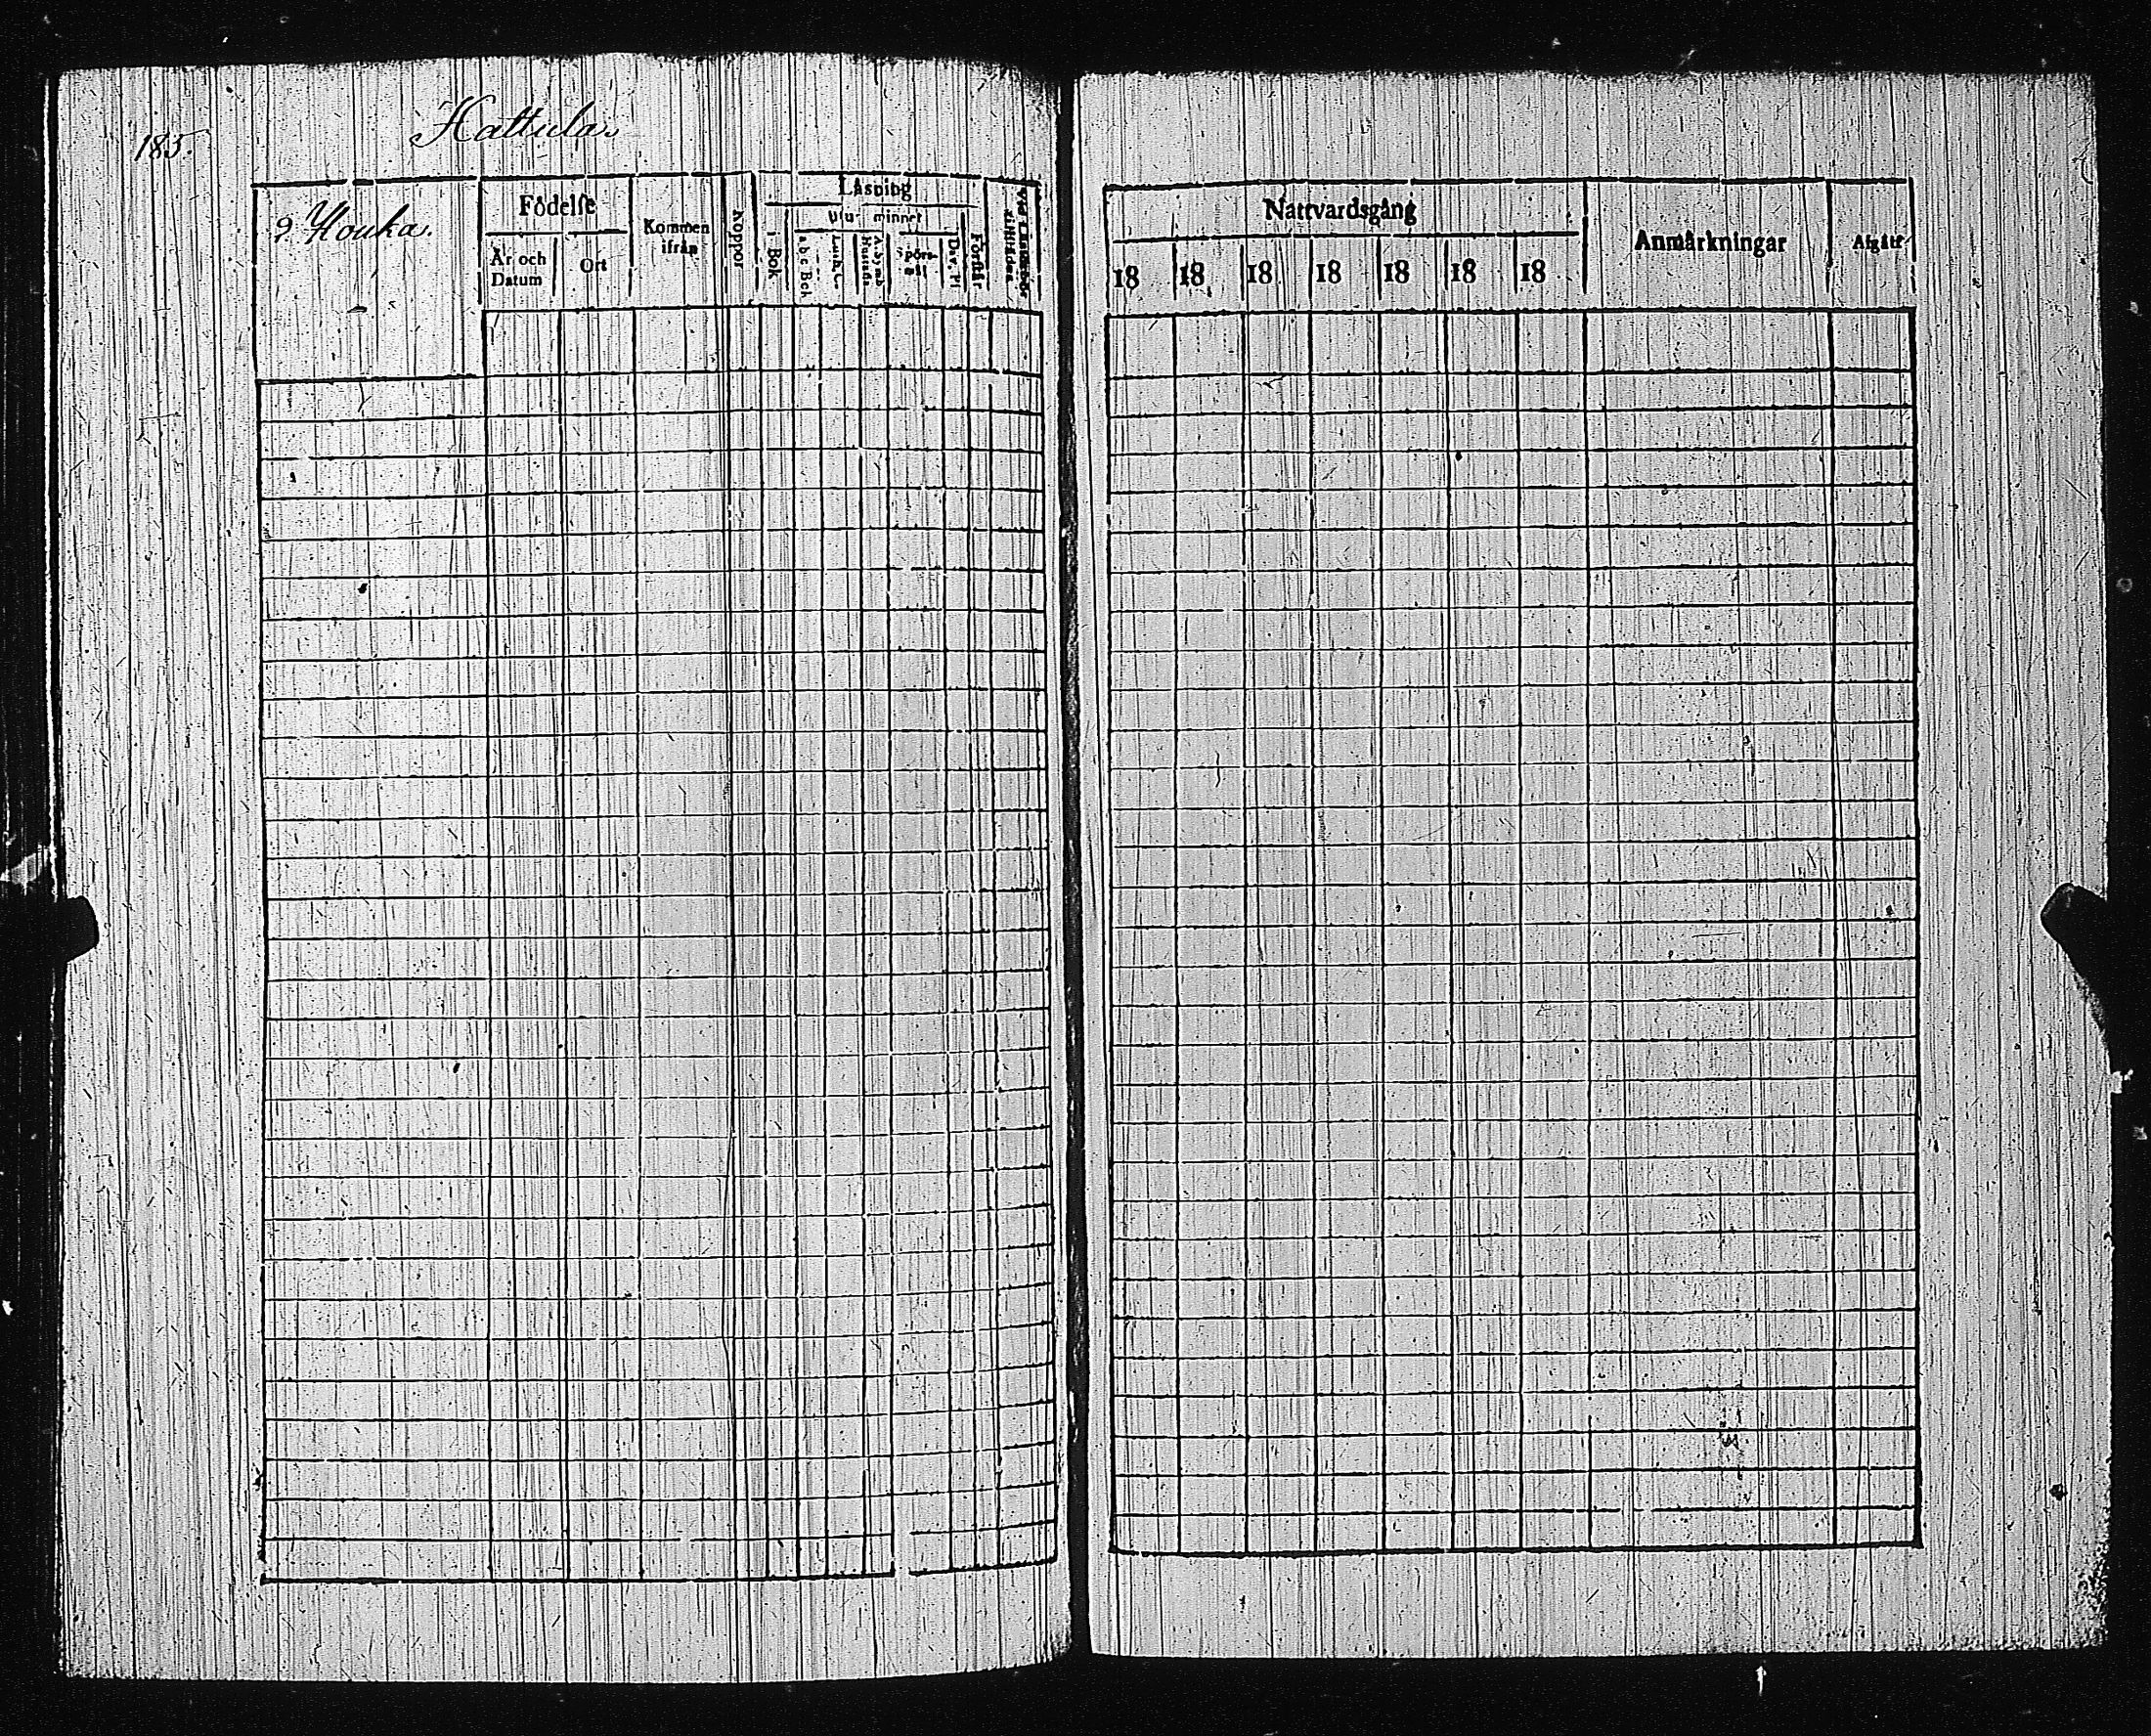 185.
Hattula
2. Houka.
Födelse
År och Datum
Ort
Kommen ifrån
Koppor
Läsning
i Bok
Utur minnet
a b c Bok
Luth. C.
Spörsmål
Dav. Ps
Förstår
Nattvardsgång
18 18 18 18 18 18 18
Anmärkningar
Afgått